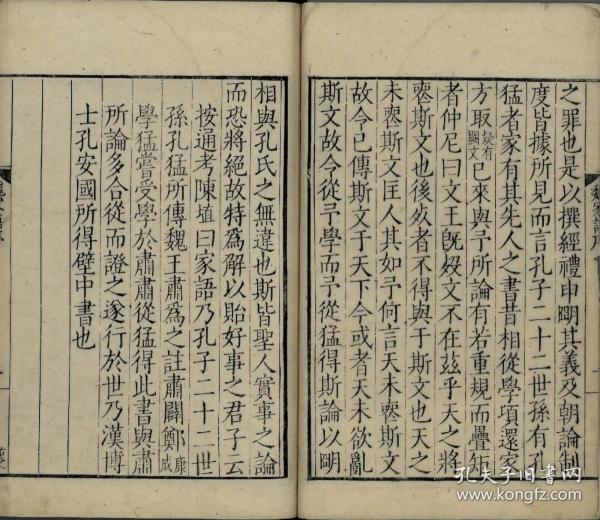 之罪也是以撰經禮申明其義及朝論制
度皆據所見而言孔子二十二世孫有孔
猛者家有其先人之書昔相從學頃還家
方取疑有闕文已來與予所論有若重規而疊矩
者仲尼曰文王既歿文不在茲乎天之將
喪斯文也後然者不得與于斯文也天之
未喪斯文匡人其如予何言天未喪斯文
故令己傳斯文于天下今或者天未欲亂
斯文故令從予學而予從猛得斯論以明
相與孔氏之無違也斯皆聖人實事之論
而恐將絕故特爲解以貽好事之君子云
按通考陳埴曰家語乃孔子二十二世
孫孔猛所傳魏王肅爲之註肅闢鄭康成
學猛嘗受學於肅肅從猛得此書與肅
所論多合從而證之遂行於世乃漢博
士孔安國所得壁中書也
孔夫子旧书网
www.kongfz.com